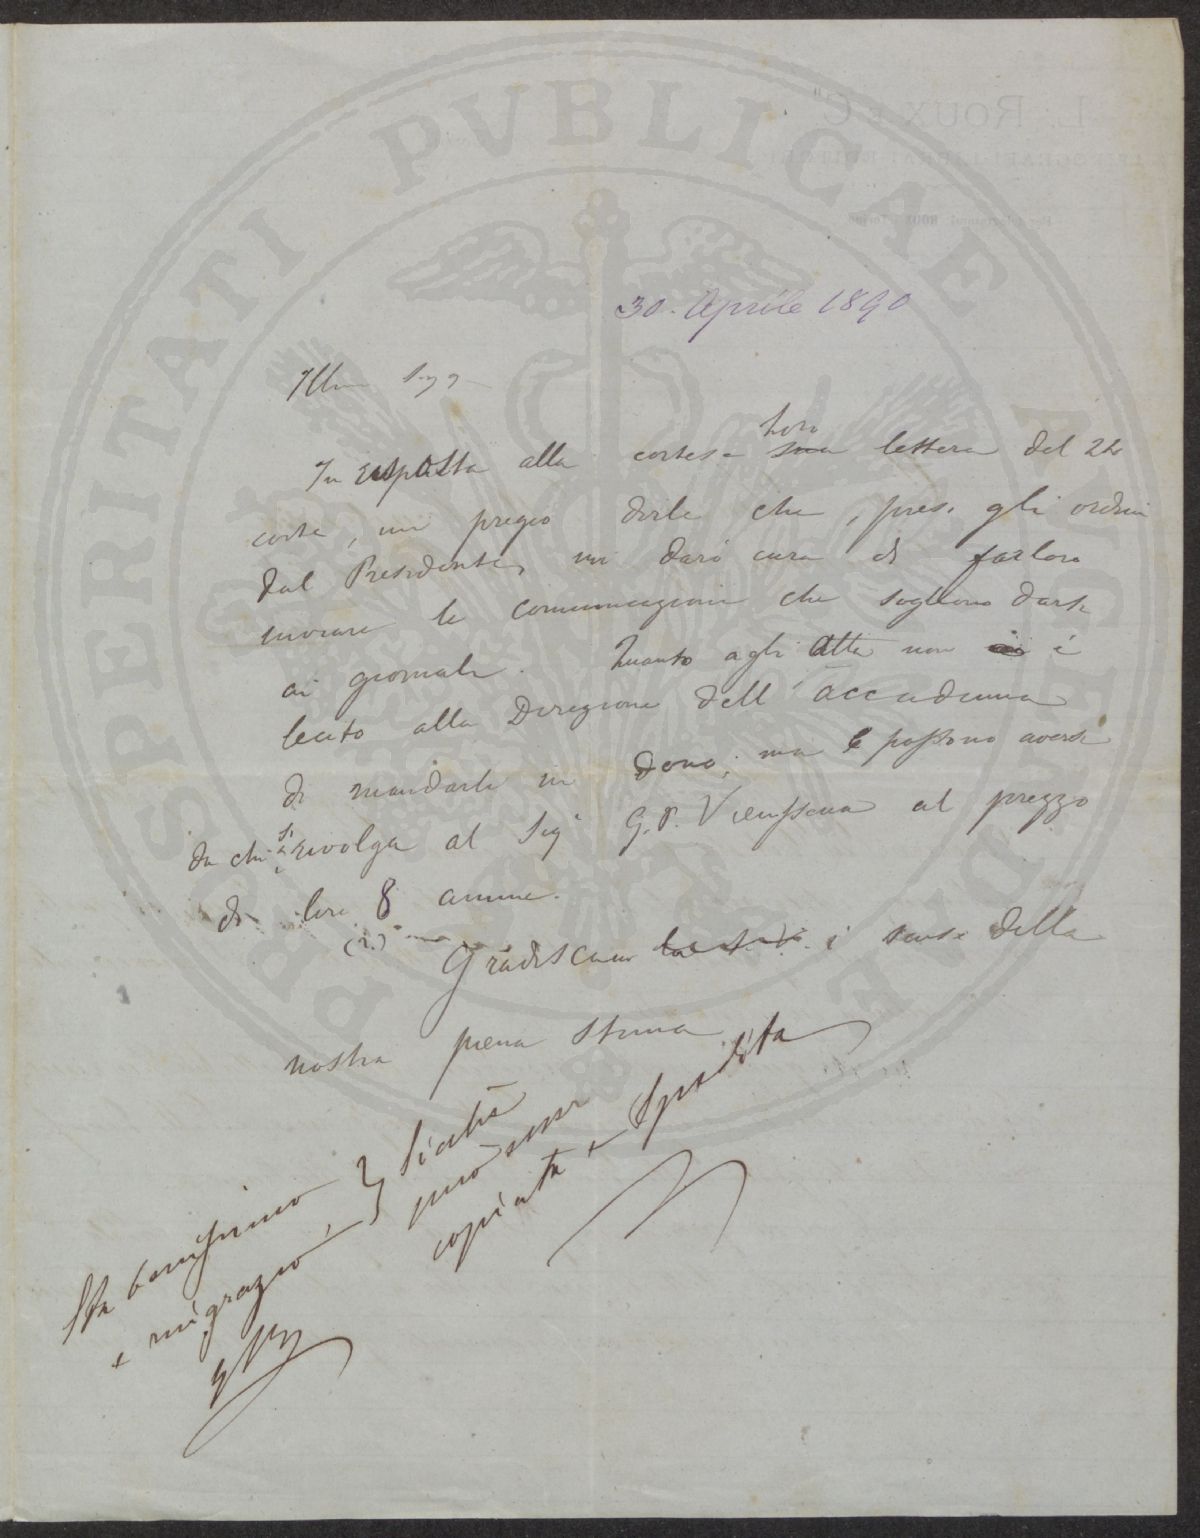 PROSPERITATI PVBLICAE AVGENDAE
L. ROUX E Cº
TIPOGRAFI LIBRAI EDITORI
30. Aprile 1890
Illmi Sigg
In risposta alla cortese Loro sua lettera del 24
corte, mi pregio dirle che, presi gli ordini
dal Presidente, mi darò cura di far loro
inviare le comunicazioni che sogliono darsi
ai giornali. Quanto agli Atti non è
lecito alla Direzione dell'Accademia
di mandarli in dono; ma possono aversi
da chi si rivolga al Sigr G. P. Vieusseux al prezzo
di lire 8 annue.
(2.)
Gradiscano la S.V. i sensi della
nostra piena stima
Sta benissimo
e ringrazio,
può esser
copiata e spedita